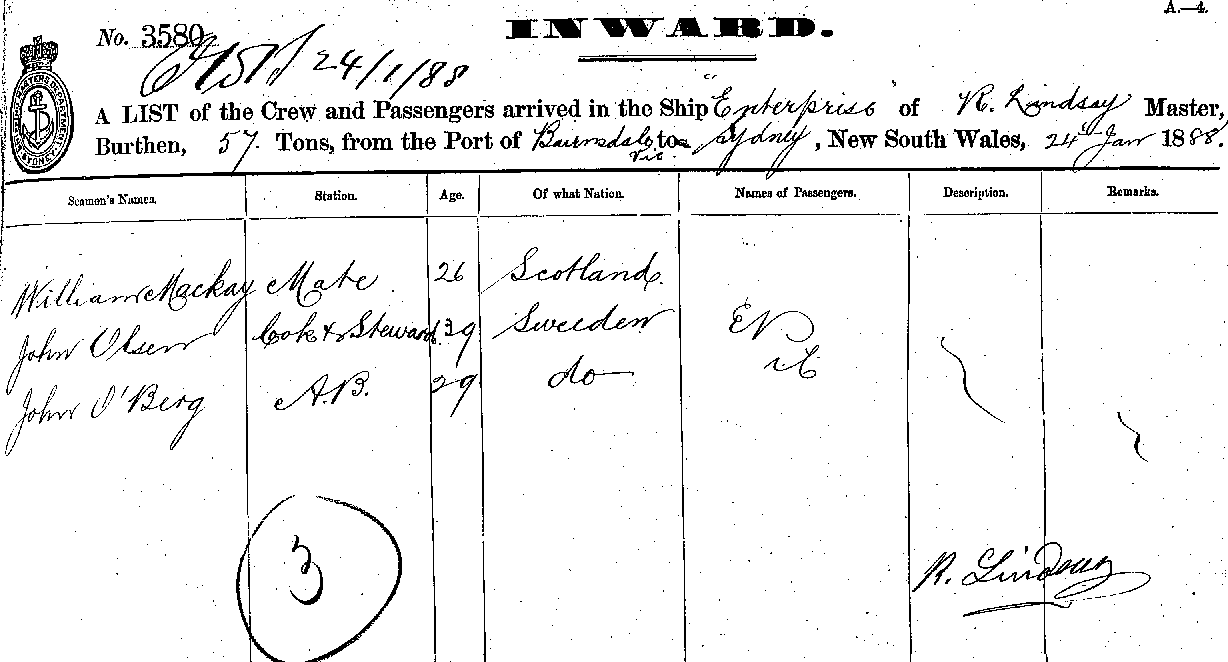 A.—4.
INWARD.
No. 3580
24/1/88
A LIST of the Crew and Passengers arrived in the Ship "Enterprise" of R. Lindsay Master,
Burthen, 57 Tons, from the Port of Bairnsdale Vic to Sydney, New South Wales, 24th Jan 1888.
Seamen's Names. Station. Age. Of what Nation. Names of Passengers. Description. Remarks.
William Mackay Mate 26 Scotland.
John Olsen Cook & Steward 39 Sweeden
John O'Berg A.B. 29 do
3
R. Lindsay